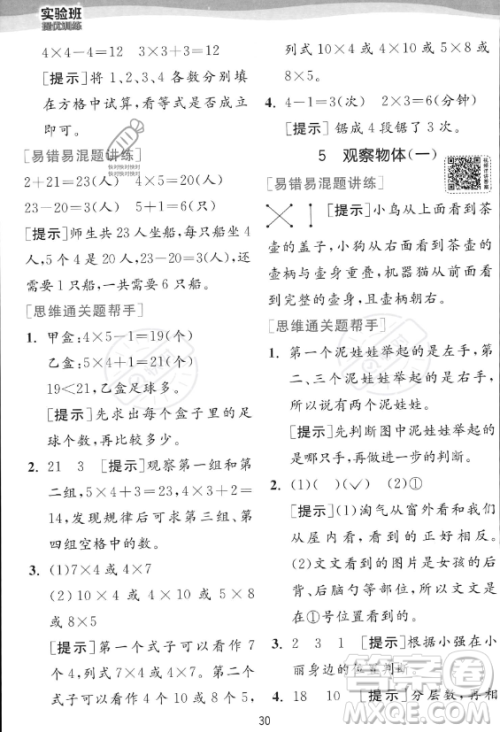 实验班
提优训练
4×4－4＝12　3×3＋3＝12
[提示]将 1、2、3、4 各数分别填
在方格中试算，看等式是否成立
即可。
[易错易混题讲练]
2＋21＝23(人)　4×5＝20(人)
23－20＝3(人)　5＋1＝6(只)
[提示]师生共 23 人坐船，每船
坐 4 人，5 个 4 是 20，23－20＝3(人)，
还需要 1 只船，一共需要 6 只船。
[思维通关题帮手]
1. 甲盒：4×5－1＝19(个)
乙盒：5×4＋1＝21(个)
19＜21，乙盒足球多。
[提示]先求出每个盒子里的足
球个数，再比较多少。
2. 21　3　[提示]观察第一组和第
二组，5×4＋3＝23，4×3＋2＝
14，发现规律后可求第三组、第
四组空格中的数。
3. (1)7×4 或 4×7
(2)10×4 或 4×10 或 5×8
或 8×5
[提示]第一个式子可以看作 7
个 4，列式 7×4 或 4×7。第二个
式子可以看作 10 个 4，
列式 4×10 或 10×4 或 5×8
或 8×5。
4. 4－1＝3(次)　2×3＝6(分钟)
[提示]锯成 4 段锯了 3 次。
5　观察物体(一)
[易错易混题讲练]
[提示]小鸟从上面看到茶
壶的盖子，小狗从对面看到茶壶的
壶柄与壶身重叠，机器猫从侧面看
到完整的壶身，且壶柄在右。
[思维通关题帮手]
1. 第一个泥娃娃举起的是左手，第
二、三个泥娃娃举起的是右手。
画圈的是第三个泥娃娃。
[提示]先判断图中泥娃娃举起
的手，再进一步的判断。
2. (1)(　)(✓)　(2)①
[提示](1)淘气从窗外看和我们
从屋内看，看到的正好相反。
(2)文文看到的图片是女孩的后
背、后脑勺等部位，所以文文
在①号位置可以看到。
3. 2　3　1　[提示]根据小强在小
丽身边的位置判断。
4. 18　10　[提示]分层数，再相
30
答案圈
MXQE.COM